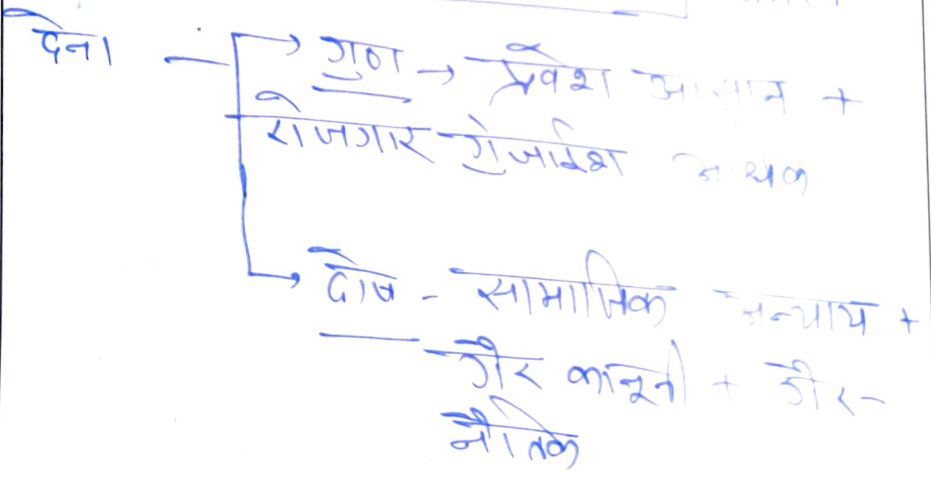 देना —
→ गुण → प्रवेश आसान +
रोजगार गुंजाईश अधिक
→ दोष - सामाजिक अन्याय +
गैर कानूनी + गैर-
नैतिक